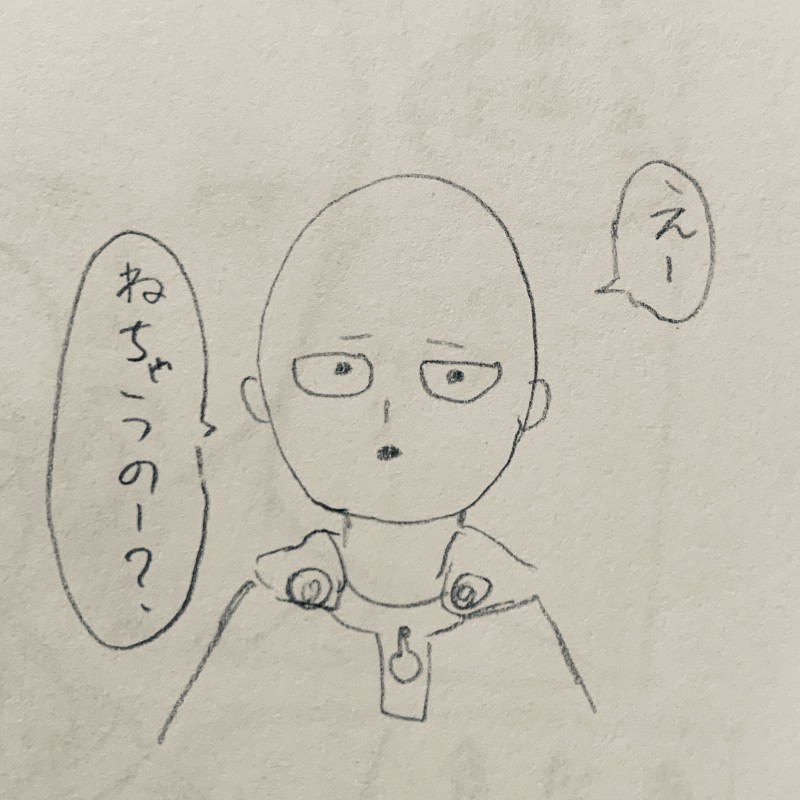 えー
ねちゃうのー?